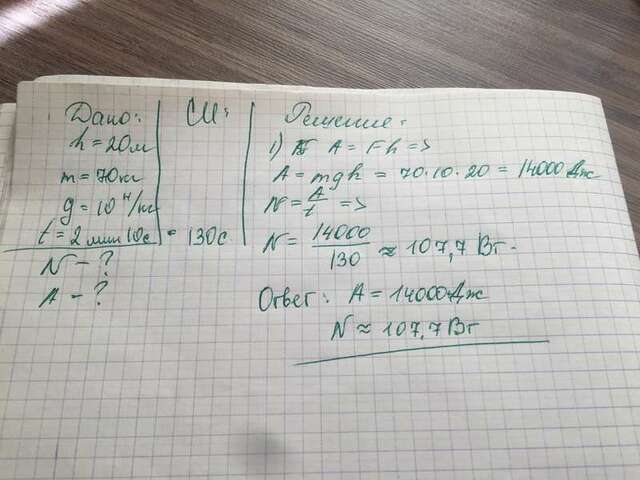 Дано:
h = 20м
m = 70кг
g = 10 Н/кг
t = 2 мин 10с
N - ?
A - ?
СИ:
= 130с
Решение:
1) A = Fh =>
A = mgh = 70·10·20 = 14000 Дж
N = A/t =>
N = 14000/130 ≈ 107,7 Вт.
Ответ: A = 14000Дж
N ≈ 107,7 Вт